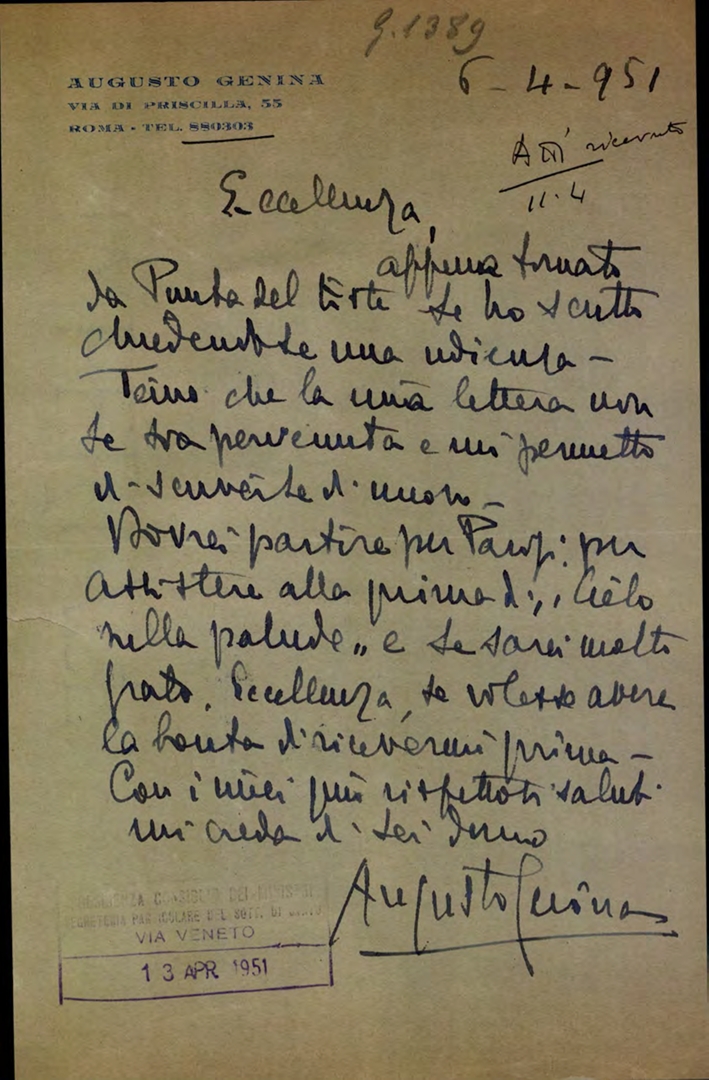 G.1389
AUGUSTO GENINA
VIA DI PRISCILLA, 55
ROMA - TEL. 880303
6-4-951
Atti ricevuto
11.4
Eccellenza,
appena tornato
da Punta del Este Le ho scritto
chiedendole una udienza -
Temo che la mia lettera non
Le sia pervenuta e mi permetto
di scriverle di nuovo -
Dovrei partire per Parigi per
assistere alla prima di "Cielo
nella palude" e Le sarei molto
grato, Eccellenza, se volesse avere
la bontà di ricevermi prima -
Con i miei più rispettosi saluti
mi creda di Lei devmo
Augusto Genina
PRESIDENZA CONSIGLIO DEI MINISTRI
SEGRETERIA PARTICOLARE DEL SOTT. DI STATO
VIA VENETO
13 APR 1951